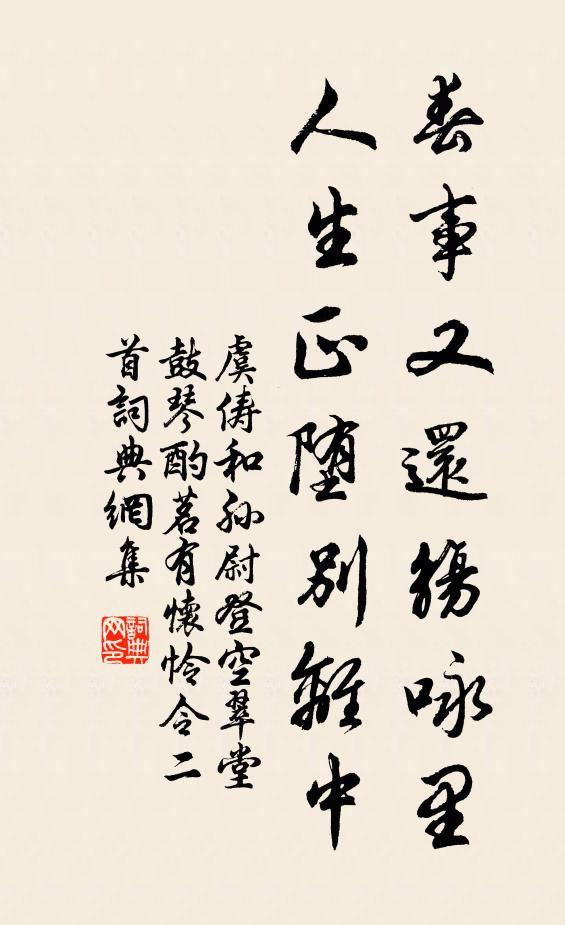 春事又還觴咏里
人生正堕別離中
虞俦和孙尉登空翠堂
鼓琴酌茗有懷怜令二
首詞典網集
詞典网印